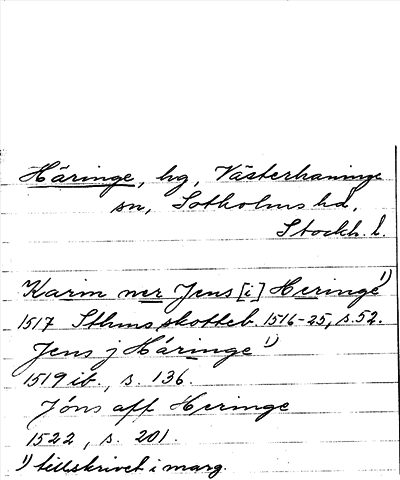 Häringe, hg, Västerhaninge
sn, Sotholms hd,
Stockh. l.
Karin ner Jens [i] Heringe 1)
1517 Sthms skotteb. 1516-25, s. 52.
Jens j Häringe 1)
1519 ib., s. 136.
Jóns aff Heringe
1522, s. 201.
1) tillskrivet i marg.